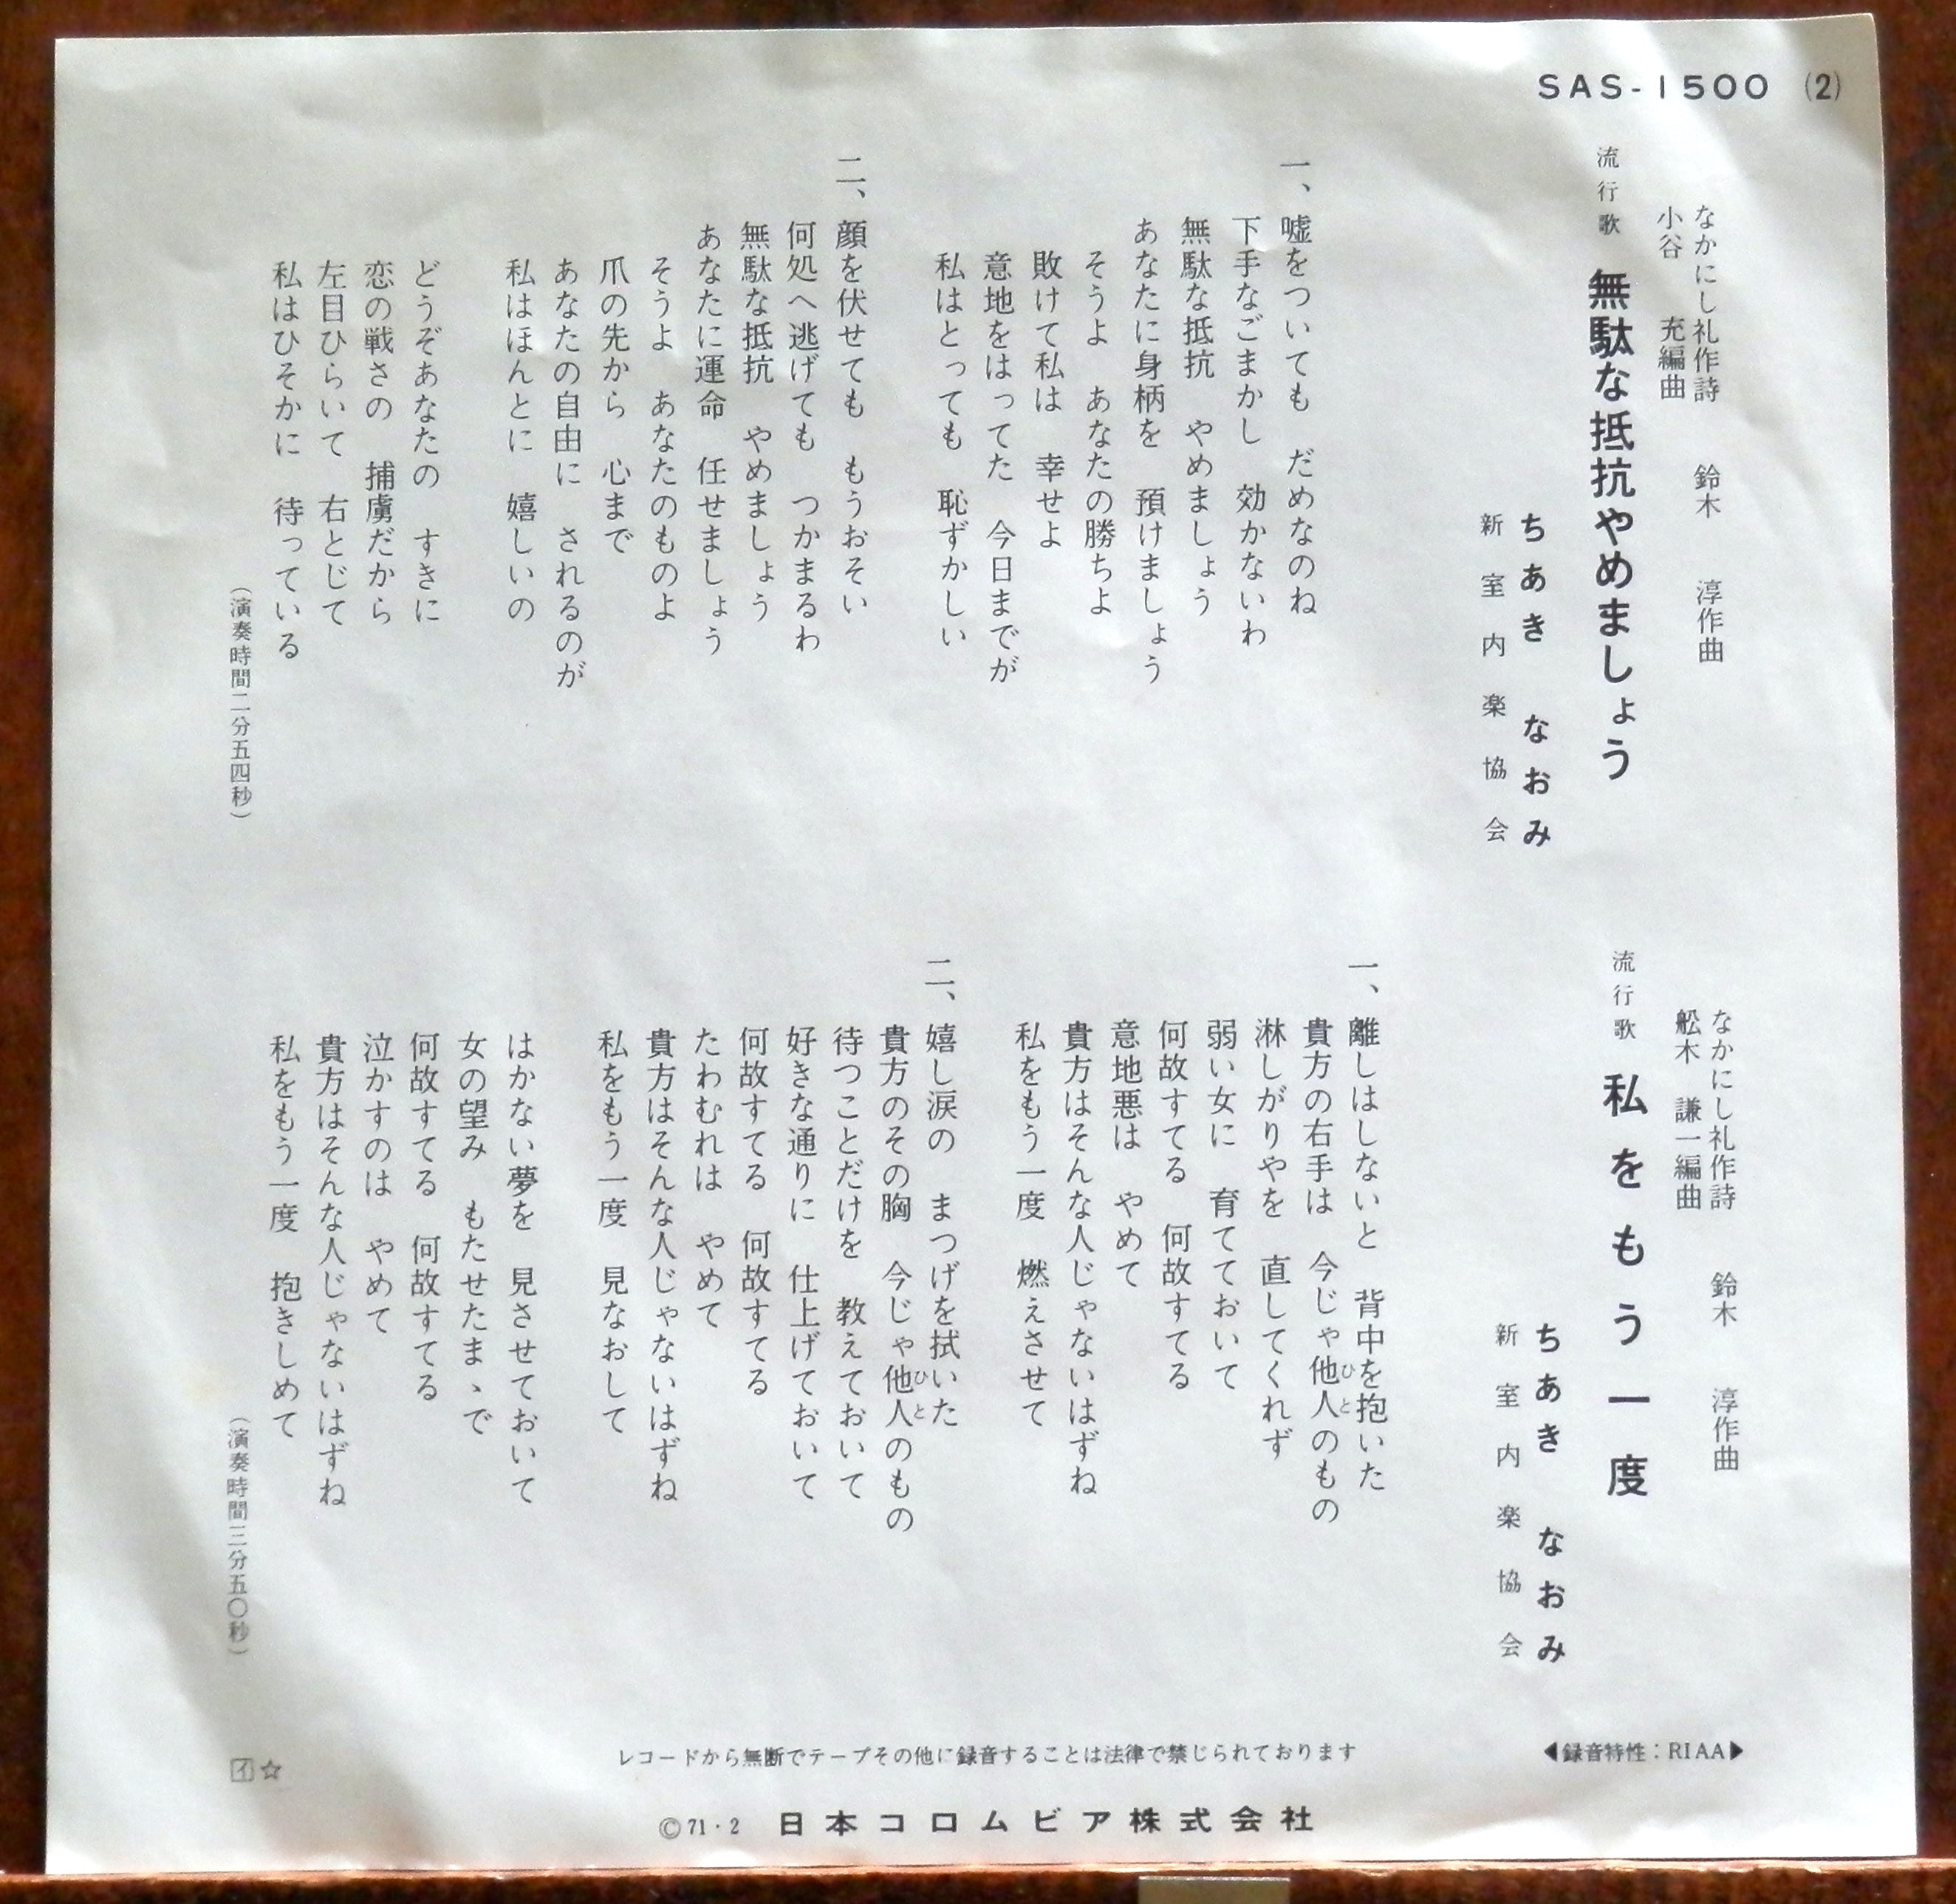 SAS-1500 (2)
なかにし礼作詩　鈴木　淳作曲
小谷　充編曲
流行歌　無駄な抵抗やめましょう
ちあき　なおみ
新室内楽協会
一、嘘をついても　だめなのね
下手なごまかし　効かないわ
無駄な抵抗　やめましょう
あなたに身柄を　預けましょう
そうよ　あなたの勝ちよ
敗けて私は　幸せよ
意地をはってた　今日までが
私はとっても　恥ずかしい
二、顔を伏せても　もうおそい
何処へ逃げても　つかまるわ
無駄な抵抗　やめましょう
あなたに運命　任せましょう
そうよ　あなたのものよ
爪の先から　心まで
あなたの自由に　されるのが
私はほんとに　嬉しいの
どうぞあなたの　すきに
恋の戦さの　捕虜だから
左目ひらいて　右とじて
私はひそかに　待っている
（演奏時間二分五四秒）
なかにし礼作詩　鈴木　淳作曲
舩木　謙一編曲
流行歌　私をもう一度
ちあき　なおみ
新室内楽協会
一、離しはしないと　背中を抱いた
貴方の右手は　今じゃ他人のもの
ひと
淋しがりやを　直してくれず
弱い女に　育てておいて
何故すてる　何故すてる
意地悪は　やめて
貴方はそんな人じゃないはずね
私をもう一度　燃えさせて
二、嬉し涙の　まつげを拭いた
貴方のその胸　今じゃ他人のもの
ひと
待つことだけを　教えておいて
好きな通りに　仕上げておいて
何故すてる　何故すてる
たわむれは　やめて
貴方はそんな人じゃないはずね
私をもう一度　見なおして
はかない夢を　見させておいて
女の望み　もたせたまゝで
何故すてる　何故すてる
泣かすのは　やめて
貴方はそんな人じゃないはずね
私をもう一度　抱きしめて
（演奏時間三分五〇秒）
レコードから無断でテープその他に録音することは法律で禁じられております
◀録音特性：RIAA▶
イ☆
©71・2　日本コロムビア株式会社